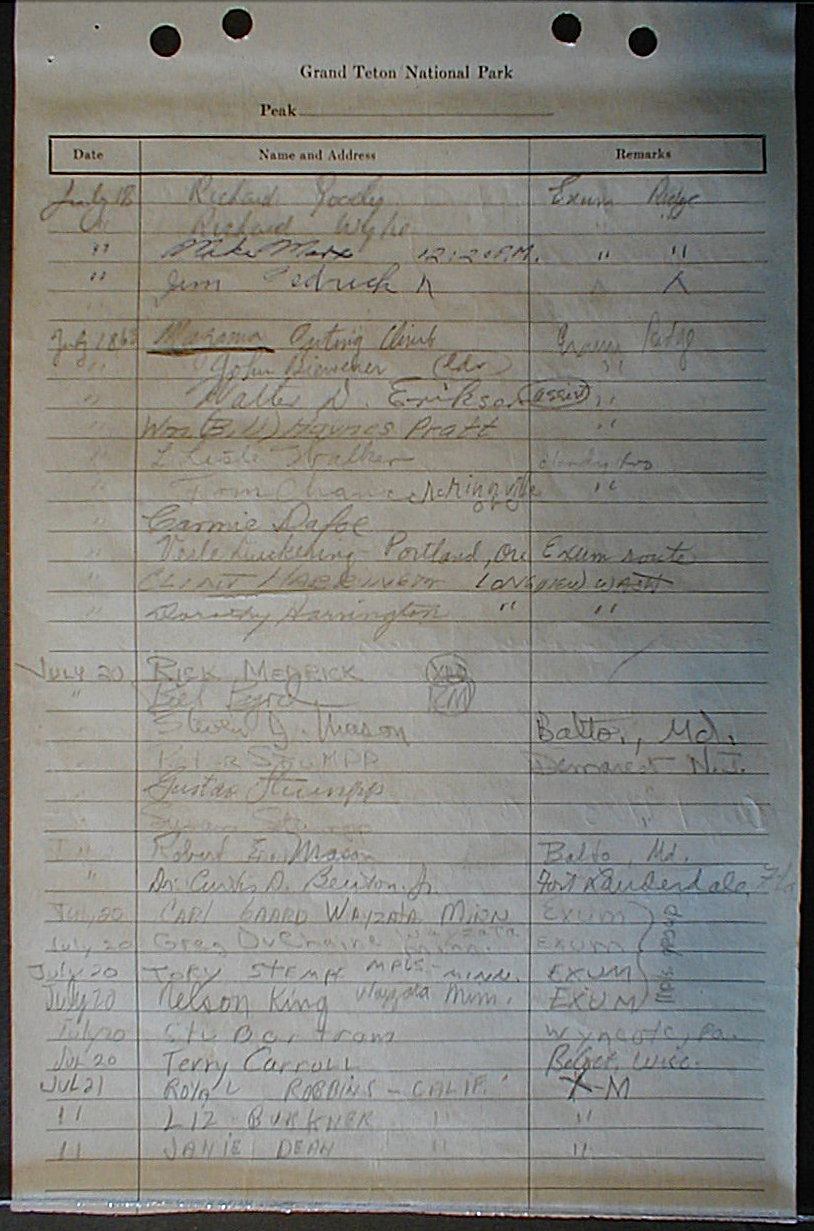 Grand Teton National Park
Peak
Date Name and Address Remarks
July 18 Richard Exum Ridge
" Richard
" Mike Marx 12:20 P.M. " "
" Jim
July 18 63 Mazama Outing Climb Ridge
" John Biewener (ldr) "
" Walter D. Erikson (assist) "
" Wm (Bill) Pratt "
" L Walker
" Tom "
" Carmie Dafoe
" Portland, Ore Exum route
" CLINT HARRINGTON LONGVIEW WASH
" Dorothy Harrington " "
JULY 20 RICK MEDRICK
" Bill
Steven J. Mason Balto., Md.
Demarest N.J.
" Gustav Stumpp
" "
" Robert E. Mason Balto, Md.
" Dr. Curtis D. Benton, Jr. Fort Lauderdale, Fla
July 20 CARL GAARD WAYZATA MINN EXUM
July 20 Greg DuChaine Wayzata Minn. EXUM
July 20 TORY STEMPF MPLS- MINN. EXUM
July 20 Nelson King Wayzata Minn. EXUM
July 20 Stu Bartram Wyncote, Pa.
Jul 20 Terry Carroll Beloit, Wisc.
JUL 21 ROYAL ROBBINS - CALIF. X-M
" LIZ BURKNER " "
" JANIE DEAN " "